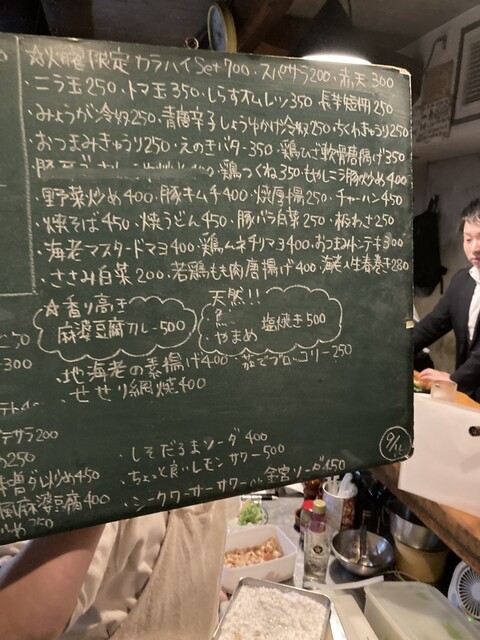 ☆火曜限定 カラハイSet700、スパサラ200・赤天300
・ニラ玉250・トマ玉350・しらすオムレツ350 長芋短冊250
・みょうが冷奴250・青唐辛子しょうゆかけ冷奴250・ちくわきゅうり250
・おつまみきゅうり250・えのきバター350・鶏ひざ軟骨唐揚げ350
鶏つくね350・もやしニラ豚炒め400
・野菜炒め400・豚キムチ400・焼厚揚250・チャーハン450
・焼そば450・焼うどん450・豚バラ白菜250・板わさ250
・海老マスタードマヨ400・鶏ムネチリマヨ400・おつまみメンテキ300
・ささみ白菜200・若鶏もも肉唐揚げ400・海老入生春巻き280
☆香り高き
麻婆豆腐カレー500
天然!!
魚
やまめ 塩焼き500
・地海老の素揚げ400・茹でブロッコリー250
・せせり網焼400
300
サラ200
250
味噌ダレ炒め450
風麻婆豆腐400
250
・しそだるまソーダ400
・ちょっと良いレモンサワー500
・シークワーサーサワー 金宮ソーダ450